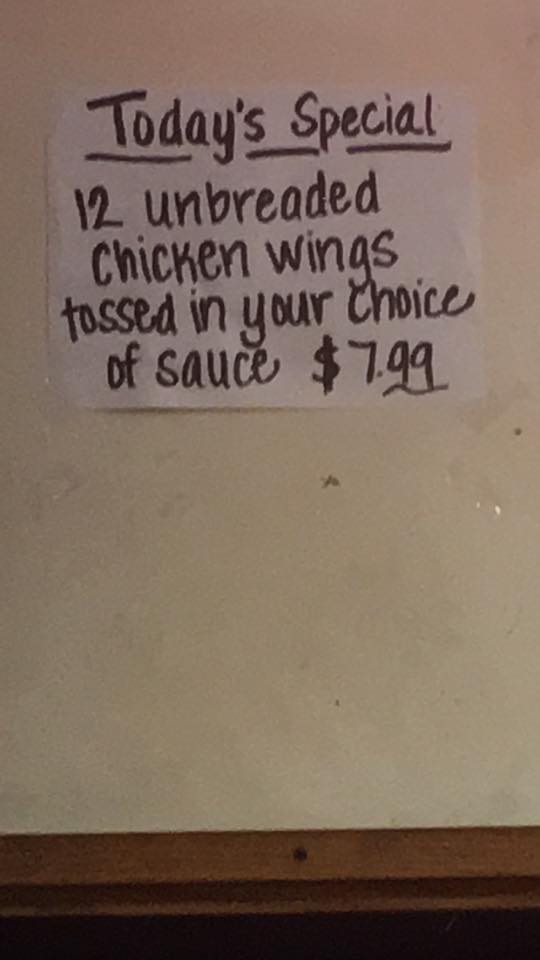 Today's Special
12 unbreaded
Chicken wings
tossed in your Choice
of sauce $7.99